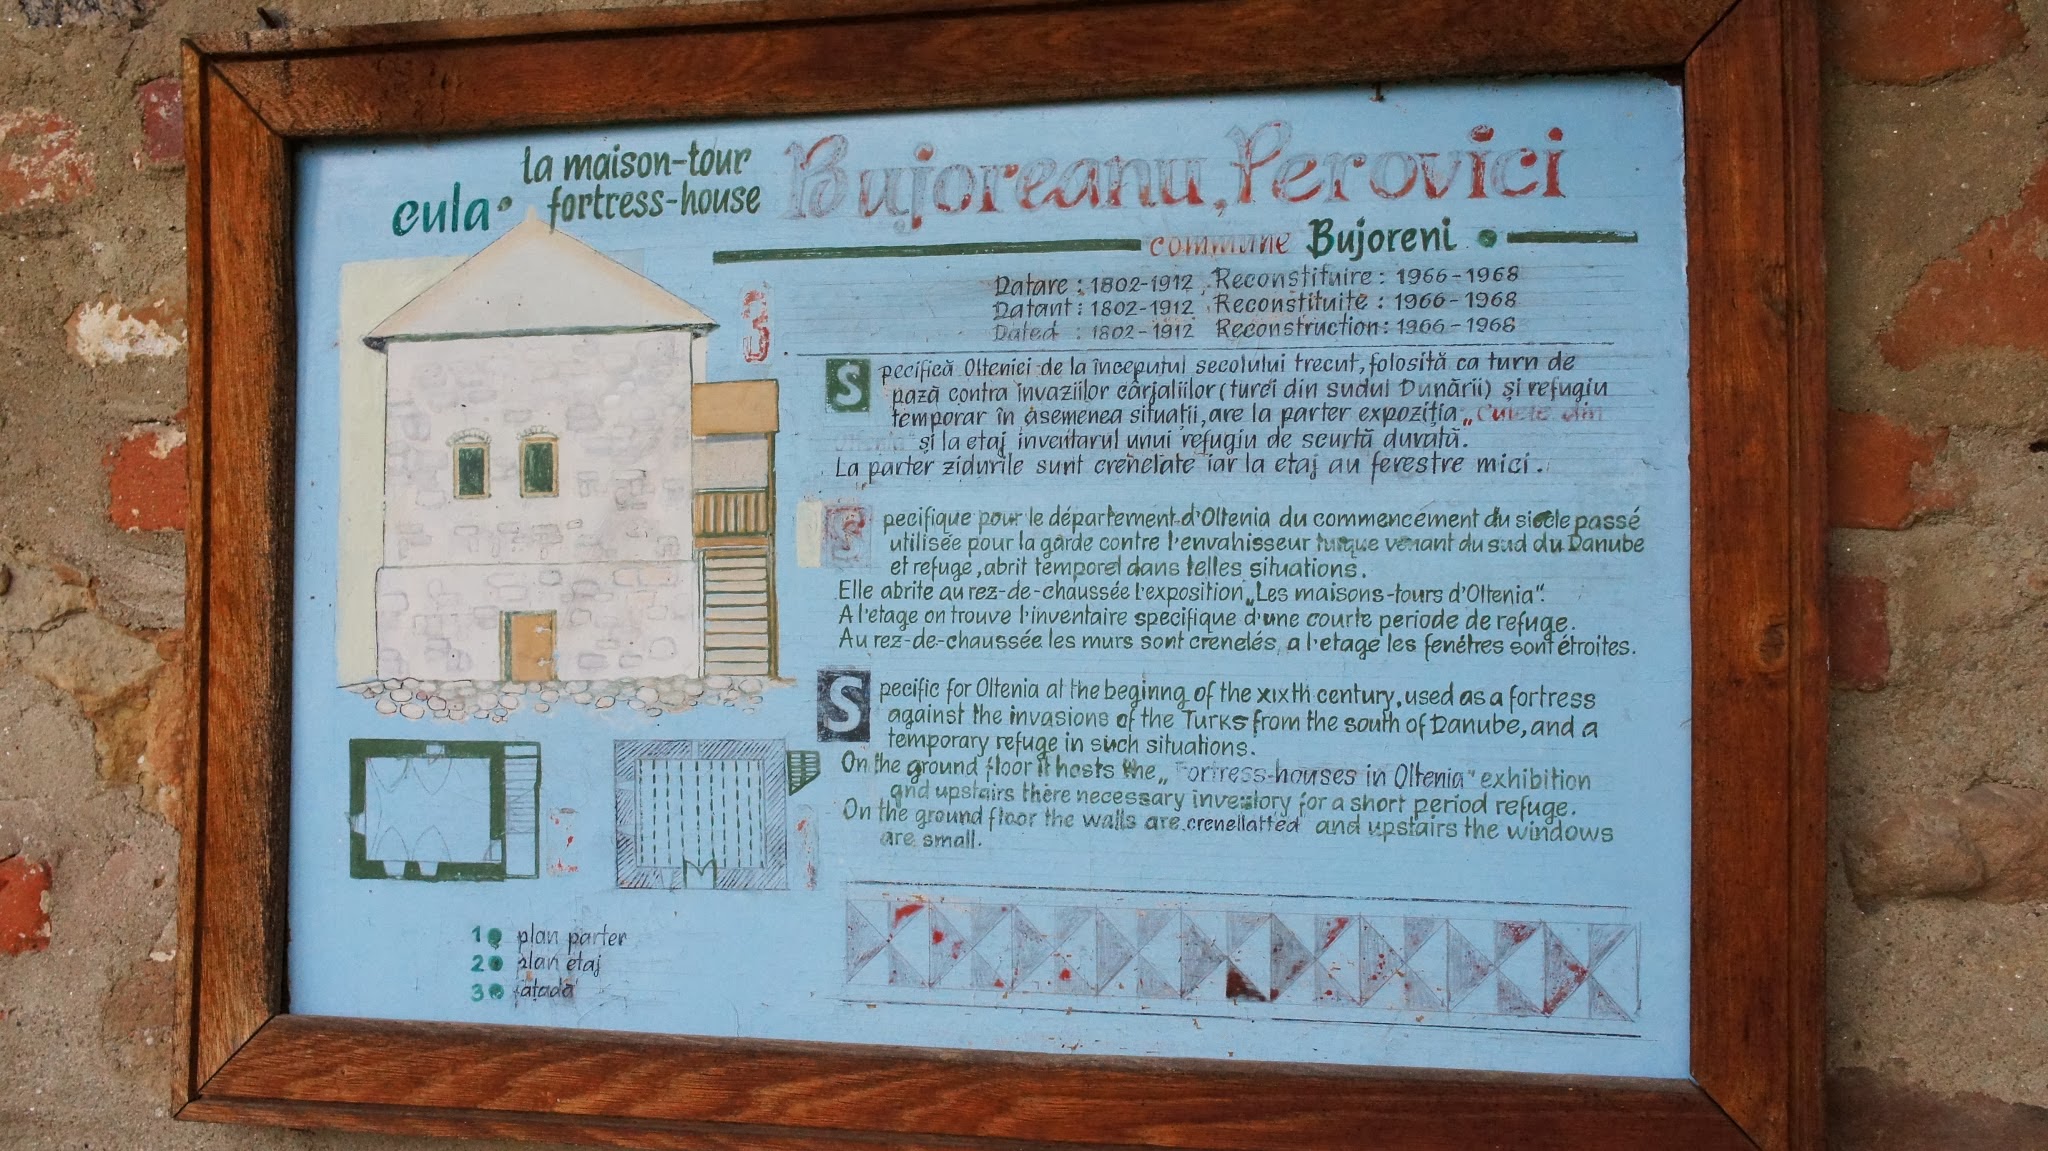 cula • la maison-tour
fortress-house
Bujoreanu, Perovici
commune Bujoreni •
Datare : 1802-1912 , Reconstituire : 1966-1968
Datant : 1802-1912 Reconstituite : 1966-1968
Dated : 1802-1912 Reconstruction : 1966-1968
3
Specifică Olteniei de la începutul secolului trecut, folosită ca turn de
pază contra invaziilor cârjaliilor (turci din sudul Dunării) și refugiu
temporar în asemenea situații, are la parter expoziția „Culele din
Oltenia" și la etaj inventarul unui refugiu de scurtă durată.
La parter zidurile sunt crenelate iar la etaj au ferestre mici.
Specifique pour le département d'Oltenia du commencement du siecle passé
utilisée pour la garde contre l'envahisseur turque venant du sud du Danube
et refuge, abrit temporel dans telles situations.
Elle abrite au rez-de-chaussée l'exposition „Les maisons-tours d'Oltenia".
A l'etage on trouve l'inventaire specifique d'une courte periode de refuge.
Au rez-de-chaussée les murs sont crenelés, a l'etage les fenêtres sont étroites.
Specific for Oltenia at the beginng of the XIXth century, used as a fortress
against the invasions of the Turks from the south of Danube, and a
temporary refuge in such situations.
On the ground floor it hosts the „Fortress-houses in Oltenia" exhibition
and upstairs there necessary inventory for a short period refuge.
On the ground floor the walls are crenellatted and upstairs the windows
are small.
2
1
1• plan parter
2• plan etaj
3• fațadă